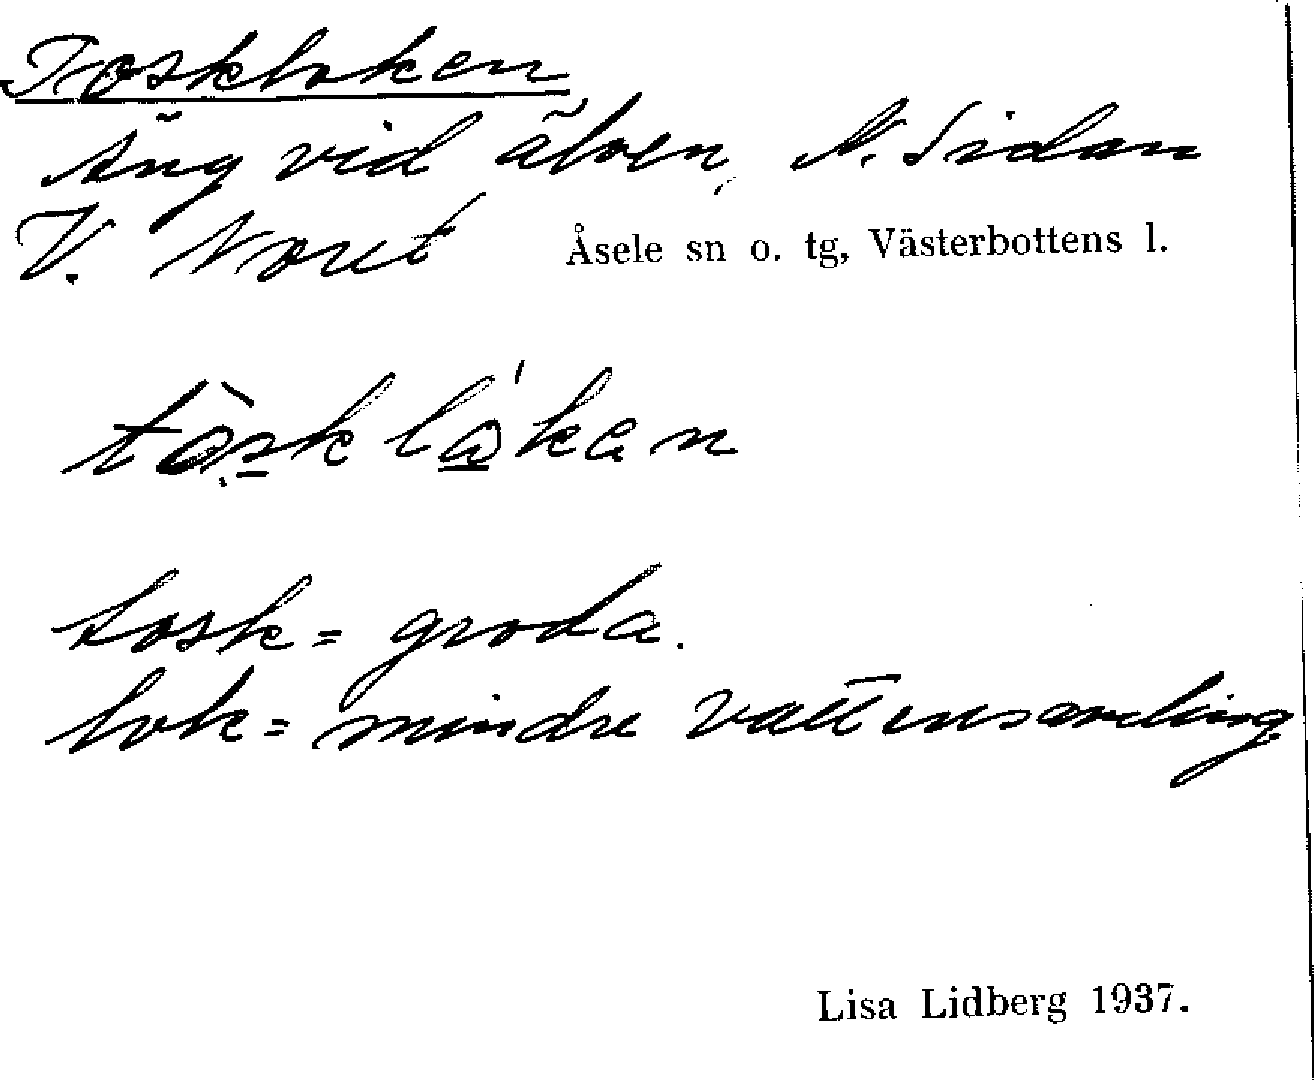 Toskloken
Äng vid älven, N. Sidan
V. Noret Åsele sn o. tg, Västerbottens l.
tosk = groda.
lok = mindre vattensamling
Lisa Lidberg 1937.